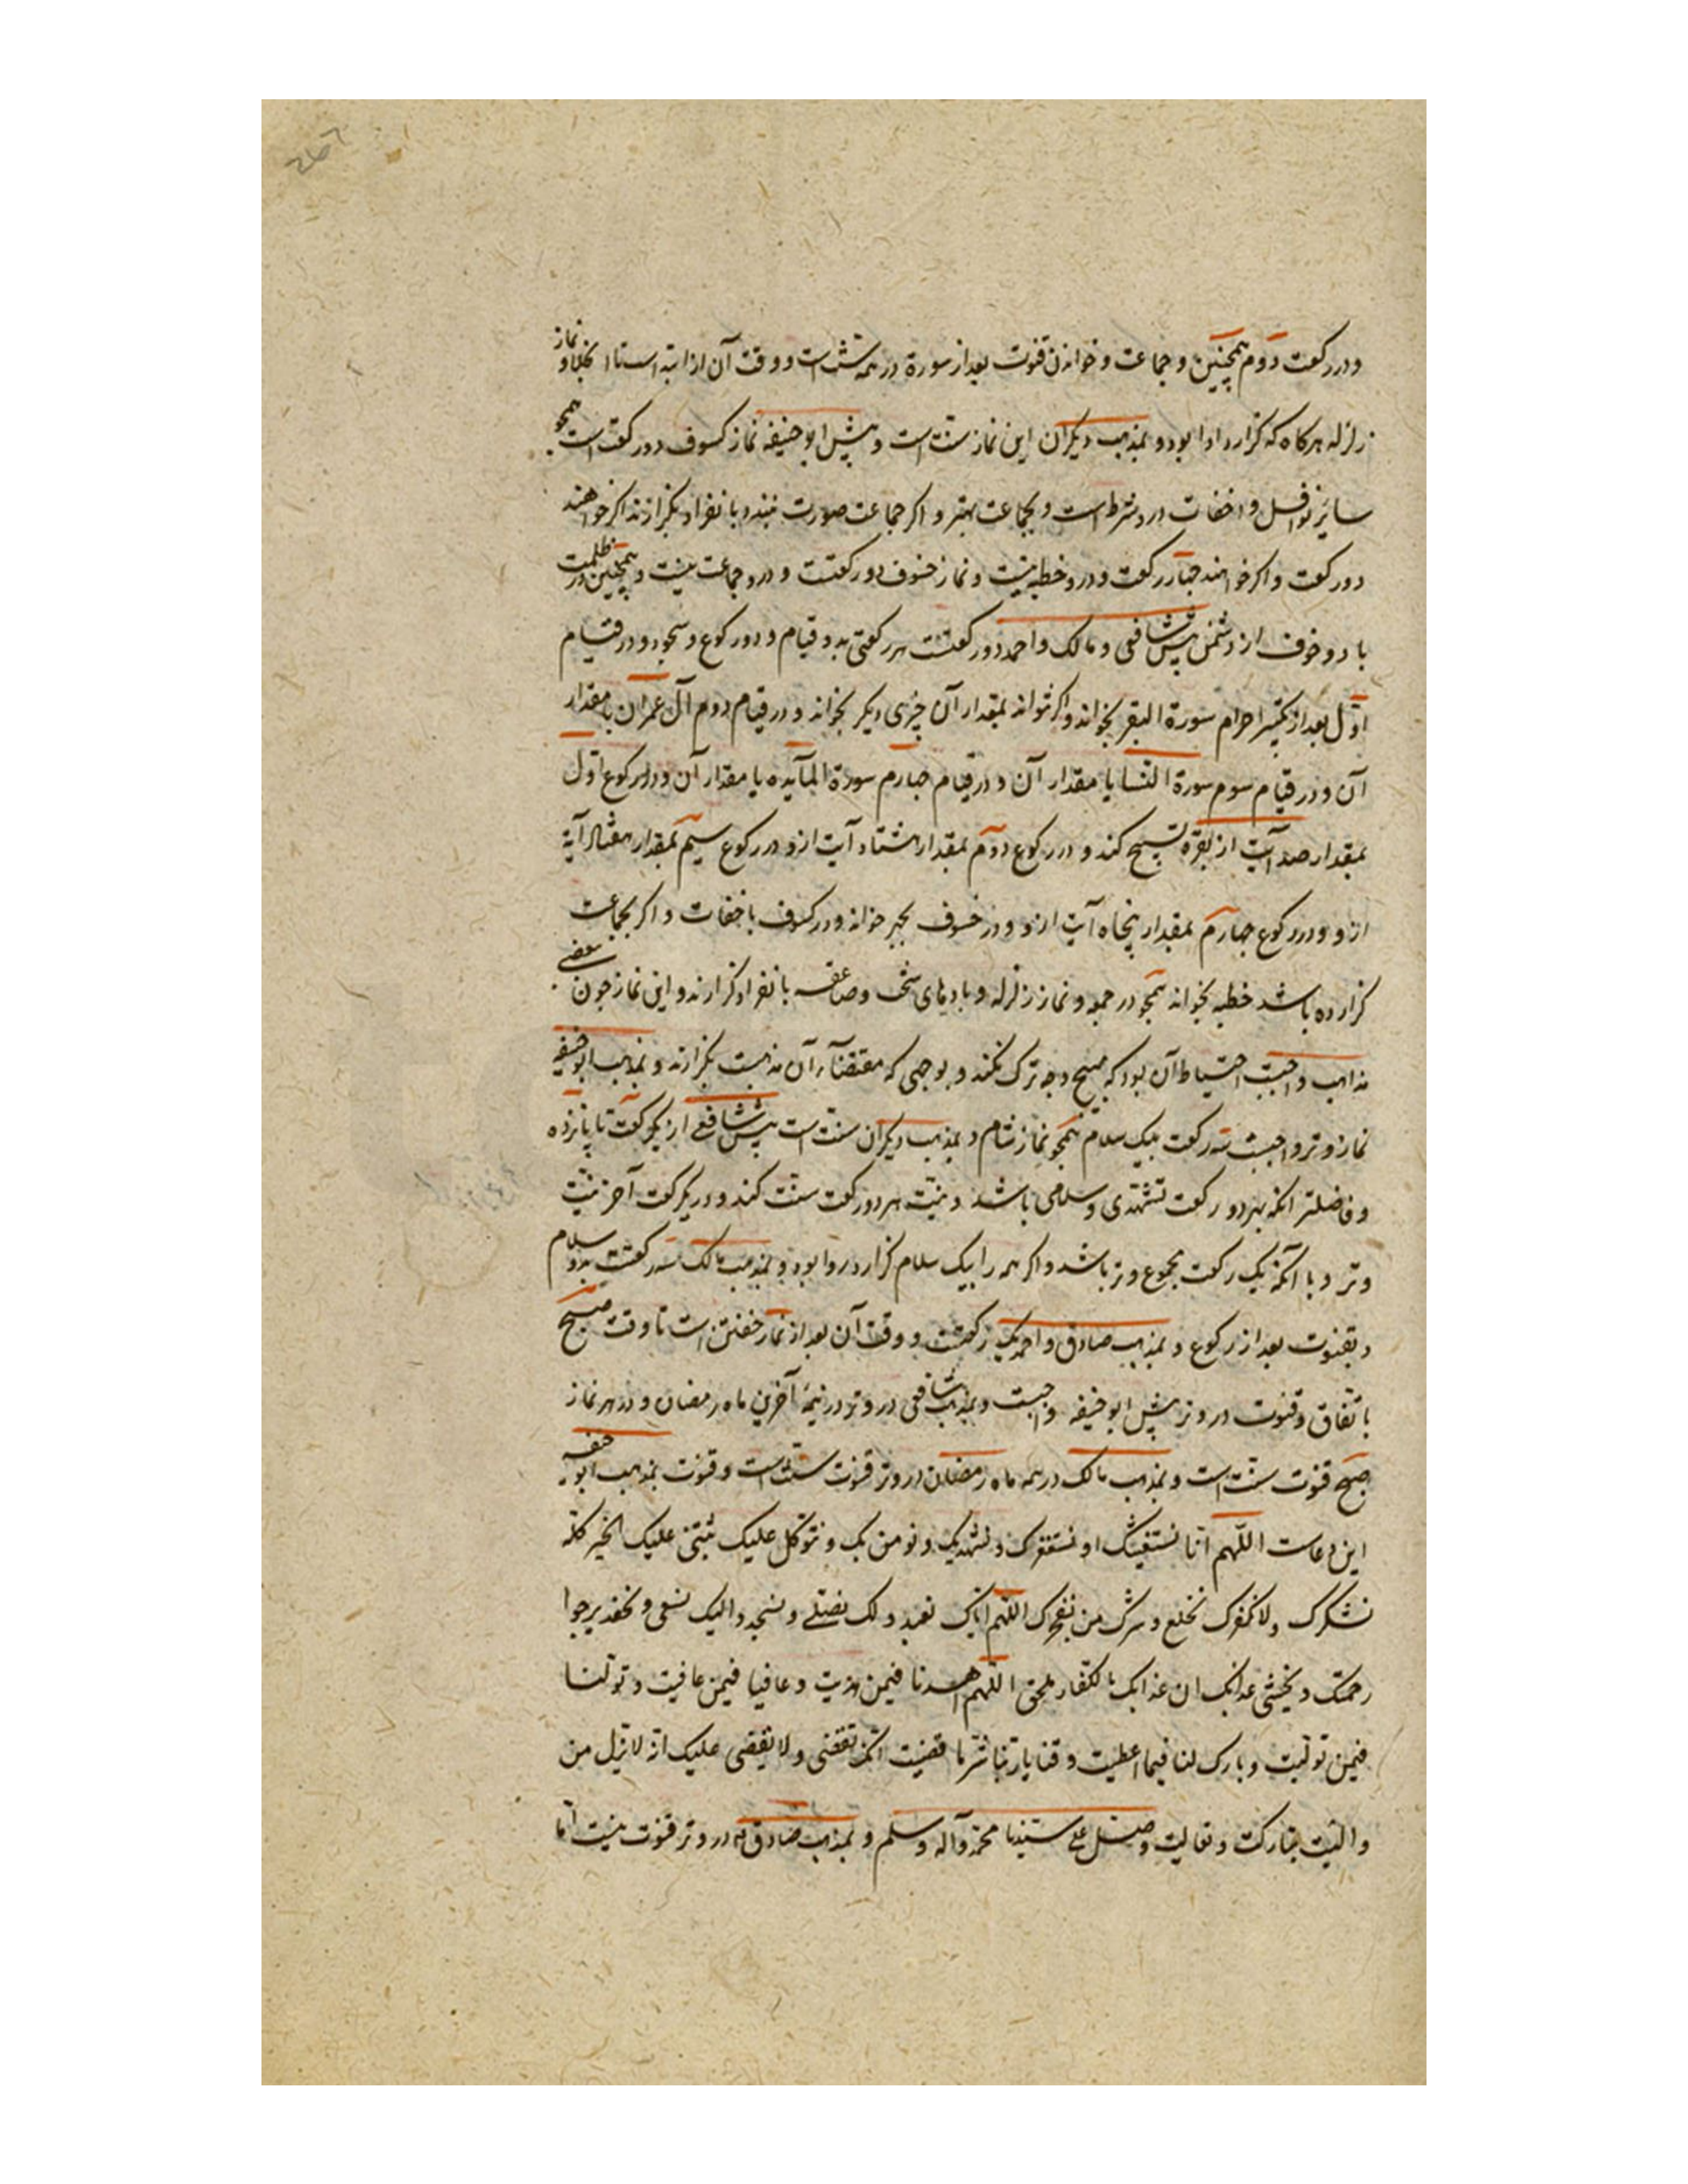 و در رکعت دوم همچنین و جماعت و خواندن قنوت بعد از سورة در همه سنت است و وقت آن از ابتدا است تا انجلا و نماز
زلزله هرکاه که کزارد ادا بود و بمذهب دیکران این نماز سنت است و پیش ابو حنیفه نماز کسوف دو رکعت است همجو
سایر نوافل و اخفات درو شرط است و بجماعت بهتر و اکر جماعت صورت نبندد بانفراد بکزارند اکر خواهند
دو رکعت و اکر خواهند جهار رکعت و درو خطبه نیست و نماز خسوف دو رکعتست و درو جماعت نیست و همچنین در ظلمت
باد و خوف از دشمن پیش شافعی و مالک و احمد دو رکعتست هر رکعتی بدو قیام و دو رکوع و سجود و در قیام
اول بعد از تکبیر احرام سورة البقر بخواند و اکر نتواند بمقدار آن چیزی دیکر بخواند و در قیام دوم آل عمران یا مقدار
آن و در قیام سوم سورة النسا یا مقدار آن و در قیام جهارم سورة المآیده یا مقدار آن و در رکوع اول
بمقدار صد آیت از بقره تسبیح کند و در رکوع دوم بمقدار هشتاد آیت ازو در رکوع سیم بمقدار هفتاد آیة
ازو و در رکوع جهارم بمقدار پنجاه آیت ازو و در خسوف بجهر خواند و در کسوف باخفات و اکر بجماعت
کزارده باشد خطبه بخواند همجو در جمعه و نماز زلزله و بادهای سخت و صاعقه بانفراد کزارند و این نماز جون بعضی
مذاهب واجبست احتیاط آن بود که بهیچ وجه ترک نکنند و بوجهی که مقتضآء آن مذهبست بکزارند و بمذهب ابو حنیفه
نماز وتر واجبست سه رکعت بیک سلام همجو نماز شام و بمذهب دیکران سنت است پیش شافعی از یک رکعت تا یانزده
و فاضلتر انکه بهر دو رکعت تشهدی و سلامی باشد و نیت هر دو رکعت سنت کند و در یک رکعت آخر نیت
وتر و با آنکه یک رکعت مجموع وتر باشد و اکر همه را بیک سلام کزارد روا بود و بمذهب مالک سه رکعت بدو سلام
و بقنوت بعد از رکوع و بمذهب صادق و احمد یک رکعتست و وقت آن بعد از نماز خفتن است تا وقت صبح
باتفاق و قنوت در وتر پیش ابو حنیفه واجبست و بمذهب شافعی در وتر در نیمۀ آخرین ماه رمضان و در هر نماز
صبح قنوت سنت است و بمذهب مالک در همه ماه رمضان در وتر قنوت سنت است و قنوت بمذهب ابو حنیفه
این دعاست اللهم انا نستعینک و نستغفرک و نستهدیک و نومن بک و نتوکل علیک نثنی علیک الخیر کله
نشکرک و لا نکفرک نخلع و نترک من یفجرک اللهم ایاک نعبد و لک نصلی و نسجد و الیک نسعی و نحفد یرجوا
رحمتک و یخشی عذابک ان عذابک بالکفار ملحق اللهم اهدنا فیمن هدیت و عافنا فیمن عافیت و تولنا
فیمن تولیت و بارک لنا فیما اعطیت و قنا یا ربنا شر ما قضیت انک تقضی و لا یقضی علیک انه لا یذل من
والیت تبارکت و تعالیت و صل علی سیدنا محمد و آله و سلم و بمذهب صادق در وتر قنوت نیست اما